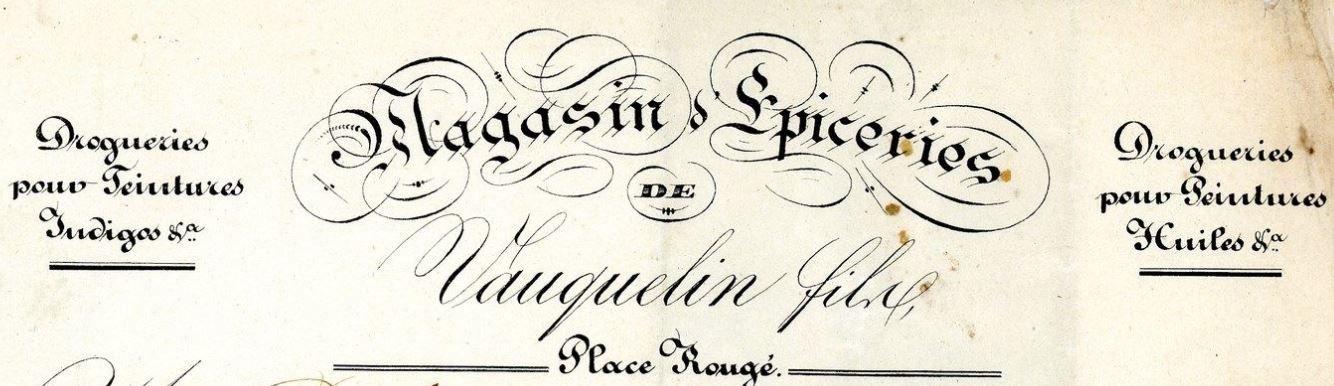 Drogueries
pour Teintures
Indigos &ª
Magasin d'Epiceries
DE
Vauquelin fils,
Place Rougé.
Drogueries
pour Peintures
Huiles &ª